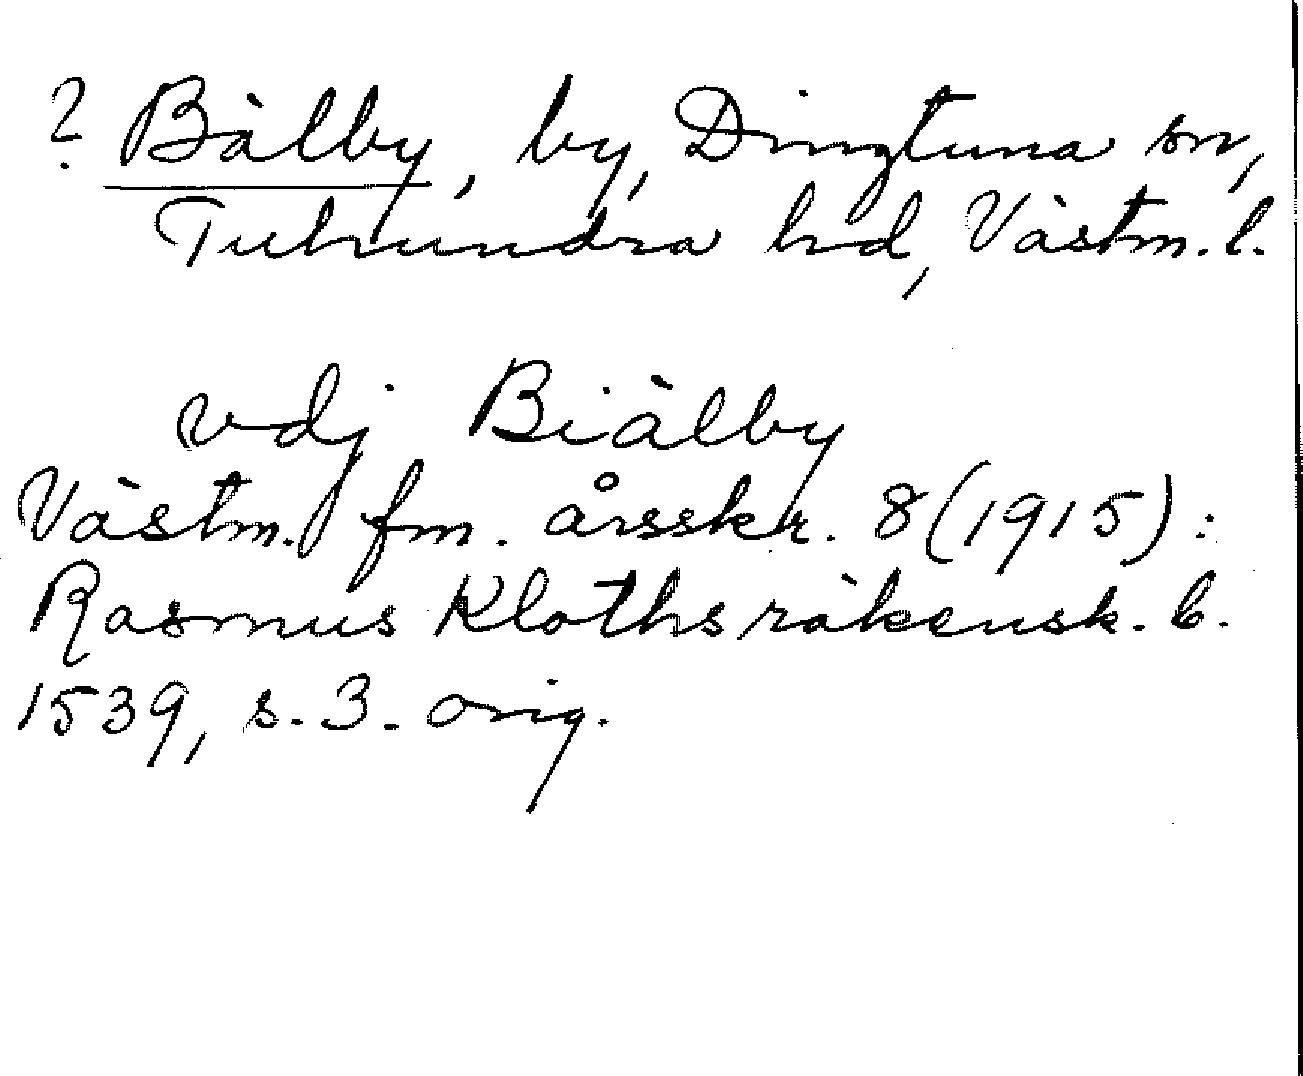 ? Bälby, by, Dingtuna sn,
Tuhundra hd, Västm. l.
vdj Biälby
Västm. fm. årsskr. 8 (1915):
Rasmus Kloths räkensk. b.
1539, s. 3. orig.